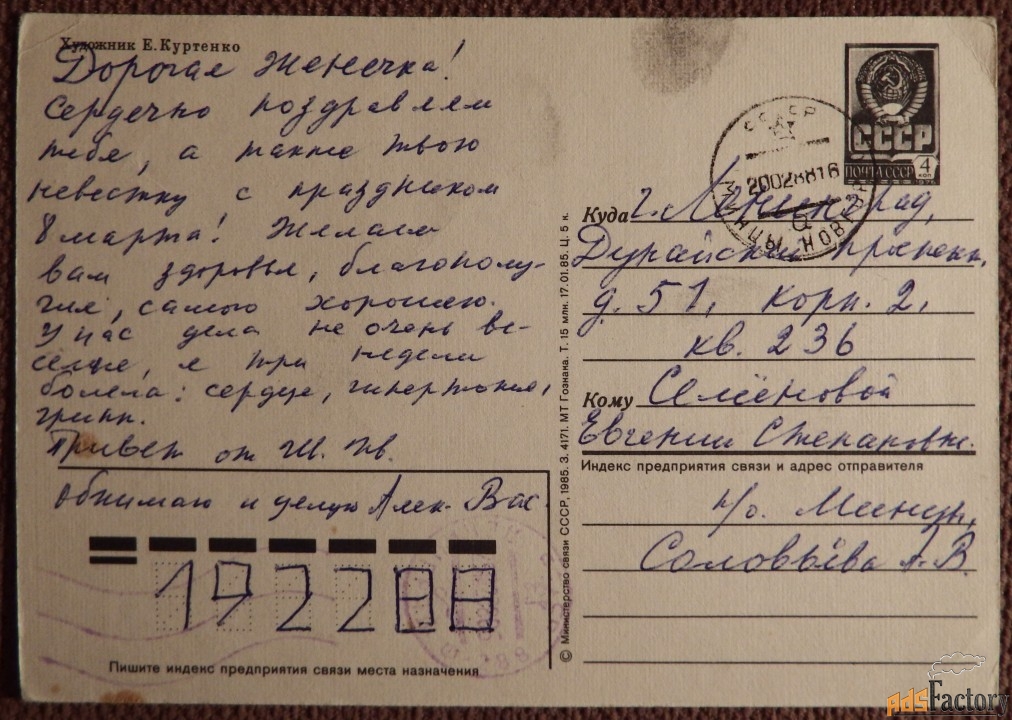 Художник Е.Куртенко
Дорогая Женечка!
Сердечно поздравляем
тебя, а также твою
невестку с праздником
8 марта! Желаем
вам здоровья, благополу-
чия, самого хорошего.
У нас дела не очень ве-
сёлые, я три недели
болела: сердце, гипертония,
грипп.
Привет от
Обнимаю и целую Алек. Вас.
192288
Пишите индекс предприятия связи места назначения
© Министерство связи СССР, 1985. З. 4171. МТ Гознака. Т. 15 млн. 17.01.85. Ц. 5 к.
СССР
ПОЧТА СССР 4 КОП
СССР
20028816
НОВГОР
Куда г. Ленинград,
Дунайский проспект,
д. 51, корп. 2,
кв. 236
Кому Семёновой
Евгении Степановне.
Индекс предприятия связи и адрес отправителя
п/о. Менцы,
Соловьёва А.В.
AdsFactory